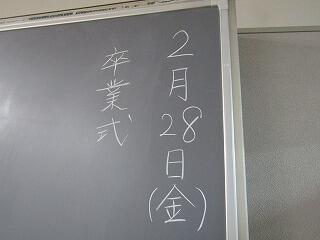 2月28日(金)
卒業式